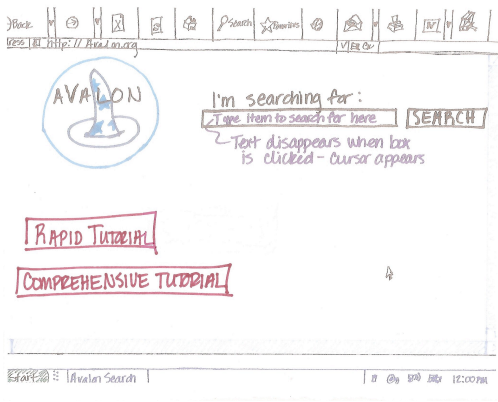 Back Search Favorites
ress http://Avalon.org
AVALON
I'm searching for:
Type item to search for here SEARCH
Text disappears when box
is clicked - cursor appears
RAPID TUTORIAL
COMPREHENSIVE TUTORIAL
Start Avalon Search 12:00 PM